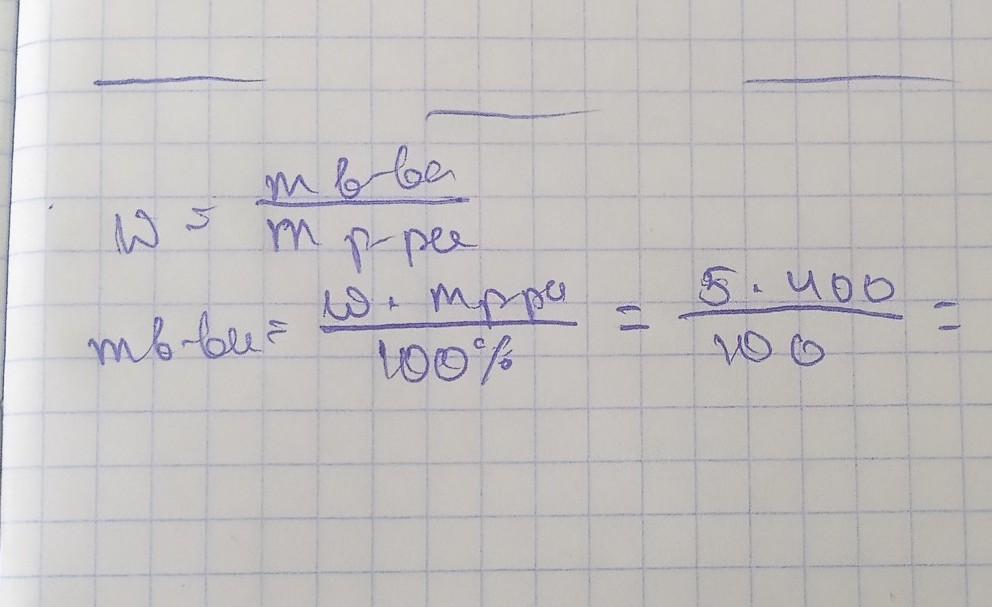 w = m в-ва / m р-ра
mв-ва = w · mр-ра / 100% = 5 · 400 / 100 =